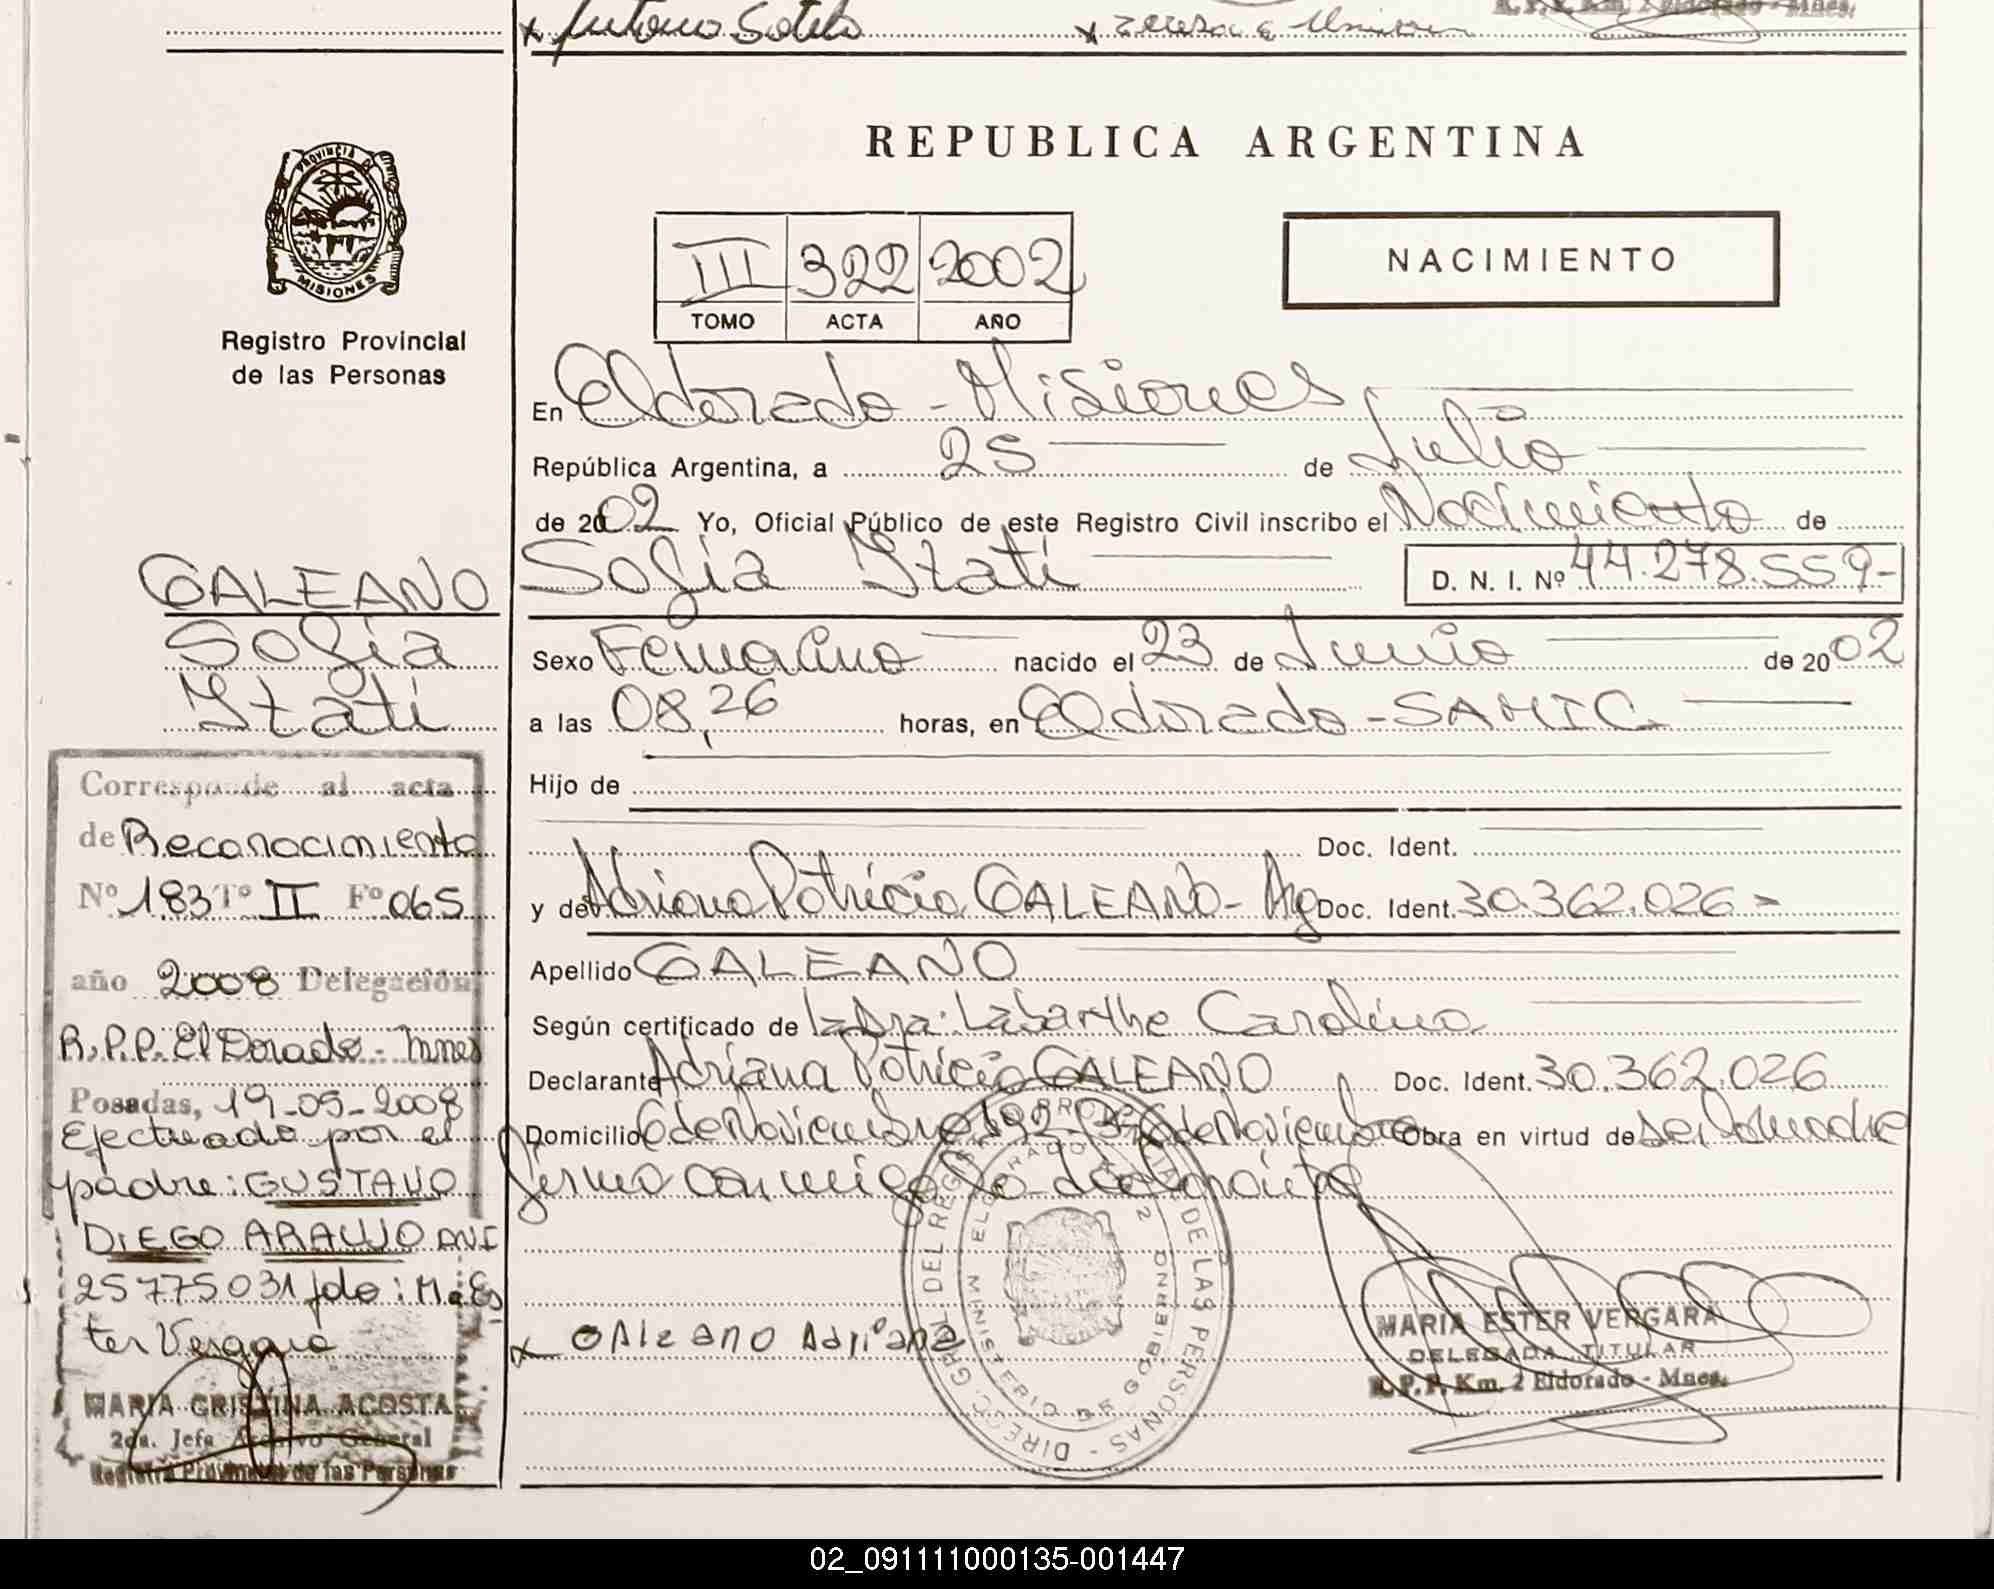 x Antonio Sotelo x Teresa
R.P.P. Km. 2 Eldorado - Mnes.
REPUBLICA ARGENTINA
PROVINCIA DE
MISIONES
Registro Provincial
de las Personas
III 322 2002
TOMO ACTA AÑO
NACIMIENTO
En Eldorado - Misiones
República Argentina, a 25 de Julio
de 2002 Yo, Oficial Público de este Registro Civil inscribo el Nacimiento de
Sofia Itati D. N. I. Nº 44.278.559-
Sexo Femenino nacido el 23 de Junio de 2002
a las 08,26 horas, en Eldorado - SAMIC
Hijo de
Doc. Ident.
y de Adriana Patricia GALEANO - Arg Doc. Ident. 30.362.026 =
Apellido GALEANO
Según certificado de la Dra: Labarthe Carolina
Declarante Adriana Patricia GALEANO Doc. Ident. 30.362.026
Domicilio 6 de Noviembre 192 - Bº 6 de Noviembre Obra en virtud de ser la madre
firma conmigo la declarante
x GALEANO Adriana
DIREC. GRAL. DEL REGISTRO PROVINCIAL DE LAS PERSONAS -
MINISTERIO DE GOBIERNO
ELDORADO KM 2
MARIA ESTER VERGARA
DELEGADA TITULAR
R.P.P. Km. 2 Eldorado - Mnes.
GALEANO
Sofia
Itati
Corresponde al acta
de Reconocimiento
Nº 183 Tº II Fº 065
año 2008 Delegación
R.P.P. El Dorado - Mnes
Posadas, 19-05-2008
Efectuado por el
padre: GUSTAVO
DIEGO ARAUJO DNI
25775031 fdo: M. Es
ter Vergara
MARIA CRISTINA ACOSTA
2da. Jefa Archivo General
Registro Provincial de las Personas
02_091111000135-001447